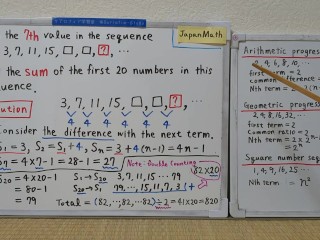 the 7th value in the sequence
JapanMath
3, 7, 11, 15, □, □, ?, …
the sum of the first 20 numbers in this
quence.
ution
3, 7, 11, 15, □, □, ?, …
4 4 4 4 4 4
Consider the difference with the next term.
S₁ = 3, S₂ = S₁+4, Sn = 3+4(n-1) = 4n-1
S₇ = 4×7-1 = 28-1 = 27
Note: Double Counting
82×20
S₂₀ = 4×20-1
= 80-1
= 79
S₁→S₂₀ 3, 7, 11, 15 … 79
S₂₀→S₁ 79, …, 15, 11, 7, 3 (+
Total = (82, …, 82, …82)÷2 = 41×20 = 820
Arithmetic progres
2, 4, 6, 8, 10, …
first term = 2
Geometric progres
2, 4, 8, 16, 32, …
first term = 2
Common ratio = 2
Nth term = 2×2ⁿ
= 2ⁿ
Square number seq
1, 4, 9, 16, 25, …
Nth term = n²